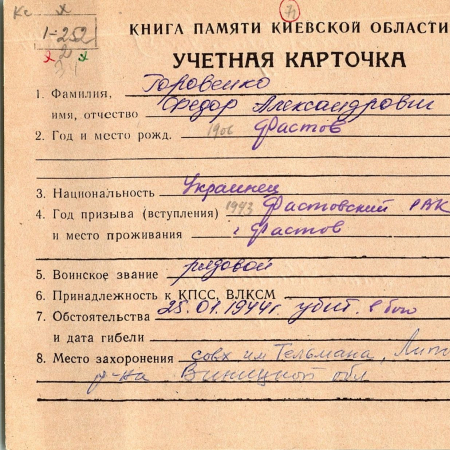 КНИГА ПАМЯТИ КИЕВСКОЙ ОБЛАСТИ
1-252
УЧЕТНАЯ КАРТОЧКА
1. Фамилия, Горовенко
имя, отчество Федор Александрович
2. Год и место рожд. 1906 Фастов
3. Национальность Украинец
4. Год призыва (вступления) 1943 Фастовский РВК
и место проживания г Фастов
5. Воинское звание рядовой
6. Принадлежность к КПСС, ВЛКСМ
7. Обстоятельства 25.01.1944г. убит в бою
и дата гибели
8. Место захоронения совх им Тельмана,
р-на Виницкой обл